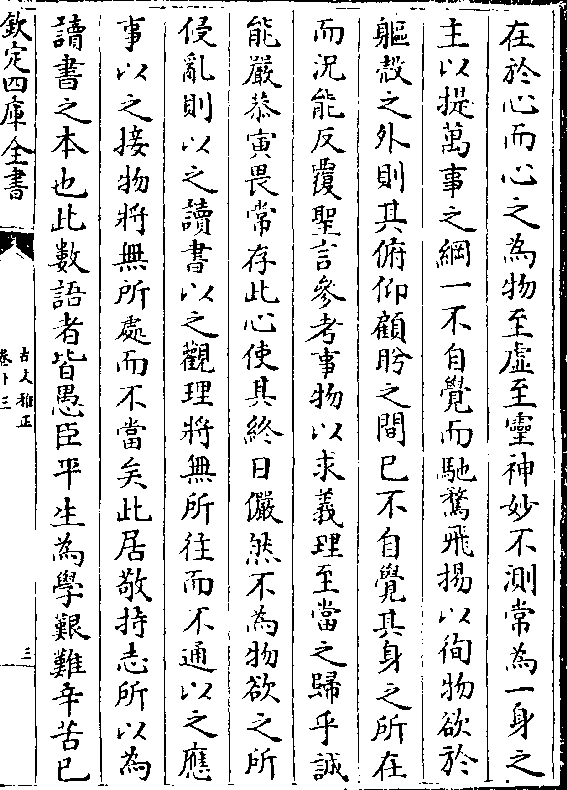 在於心而心之為物至虛至靈神妙不測常為一身之
主以提萬事之綱一不自覺而馳騖飛揚以徇物欲於
軀殼之外則其俯仰顧盼之間已不自覺其身之所在
而況能反覆聖言參考事物以求義理至當之歸乎誠
能嚴恭寅畏常存此心使其終日儼然不為物欲之所
侵亂則以之讀書以之觀理將無所徃而不通以之應
事以之接物將無所處而不當矣此居敬持志所以為
讀書之本也此數語者皆愚臣平生為學艱難辛苦已
欽定四庫全書
古文雅正
卷十三
三